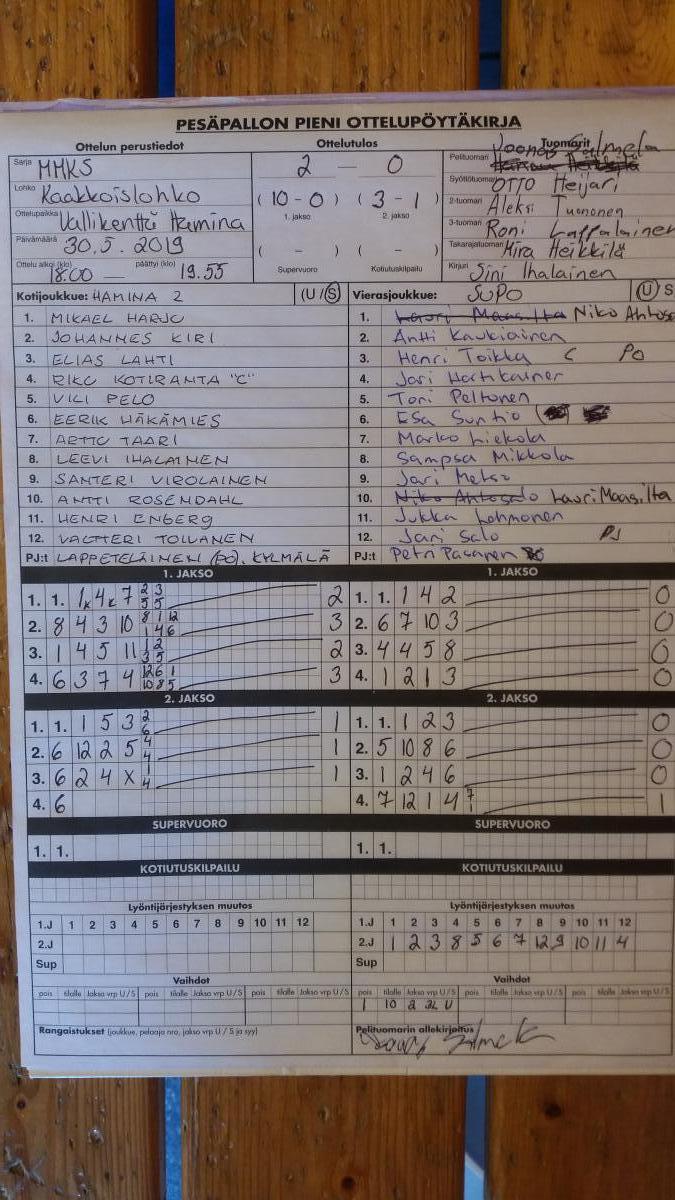 PESÄPALLON PIENI OTTELUPÖYTÄKIRJA
Ottelun perustiedot Ottelutulos Tuomarit
Sarja MMKS 2 — 0 Pelituomari Joonas Salmela
Lohko Kaakkoislohko (10-0) (3-1) Syöttötuomari OTTO Heijari
Ottelupaikka Vallikenttä Hamina 1. jakso 2. jakso 2-tuomari Aleksi Tuononen
Päivämäärä 30.5.2019 ( - ) ( - ) 3-tuomari Roni Lappalainen
Ottelu alkoi (klo) 18.00 — päättyi (klo) 19.55 Supervuoro Kotiutuskilpailu Takarajatuomari Mira Heikkilä
Kirjuri Sini Ihalainen
Kotijoukkue: HAMINA 2 (U/S) Vierasjoukkue: SUPO (U) S
1. MIKAEL HARJU 1. Lauri Maasilta Niko Ahtosalo
2. JOHANNES KIRI 2. Antti Kaukiainen
3. ELIAS LAHTI 3. Henri Toikka C PO
4. RIKU KOTIRANTA "C" 4. Jari Hartikainen
5. VILI PELO 5. Toni Peltonen
6. EERIK HÄKÄMIES 6. Esa Suntio
7. ARTTU TAARI 7. Marko Liekola
8. LEEVI IHALAINEN 8. Sampsa Mikkola
9. SANTERI VIROLAINEN 9. Jari Metso
10. ANTTI ROSENDAHL 10. Niko Ahtosalo Lauri Maasilta
11. HENRI ENBERG 11. Jukka Lohmonen
12. VALTTERI TOIVANEN 12. Jari Salo PJ
PJ:t LAPPETELÄINEN (PO), KYLMÄLÄ PJ:t Petri Pasanen
1. JAKSO 1. JAKSO
1. 1. 1x 4x 7 2 3 5 5 2 1. 1. 1 4 2 0
2. 8 4 3 10 8 1 12 1 4 6 3 2. 6 7 10 3 0
3. 1 4 5 11 1 2 3 5 2 3. 4 4 5 8 0
4. 6 3 7 4 12 6 1 10 8 5 3 4. 1 2 1 3 0
2. JAKSO 2. JAKSO
1. 1. 1 5 3 2 6 1 1. 1. 1 2 3 0
2. 6 12 2 5 4 4 1 2. 5 10 8 6 0
3. 6 2 4 X 1 4 1 3. 1 2 4 6 0
4. 6 4. 7 12 1 4 7 1 1
SUPERVUORO SUPERVUORO
1. 1. 1. 1.
KOTIUTUSKILPAILU KOTIUTUSKILPAILU
Lyöntijärjestyksen muutos Lyöntijärjestyksen muutos
1.J 1 2 3 4 5 6 7 8 9 10 11 12 1.J 1 2 3 4 5 6 7 8 9 10 11 12
2.J 2.J 1 2 3 8 5 6 7 12 9 10 11 4
Sup Sup
Vaihdot Vaihdot
pois tilalle Jakso vrp U/S pois tilalle Jakso vrp U/S pois tilalle Jakso vrp U/S pois tilalle Jakso vrp U/S pois tilalle Jakso vrp U/S pois tilalle Jakso vrp U/S
1 10 2 2L U
Rangaistukset (joukkue, pelaaja nro, jakso vrp U / S ja syy) Pelituomarin allekirjoitus